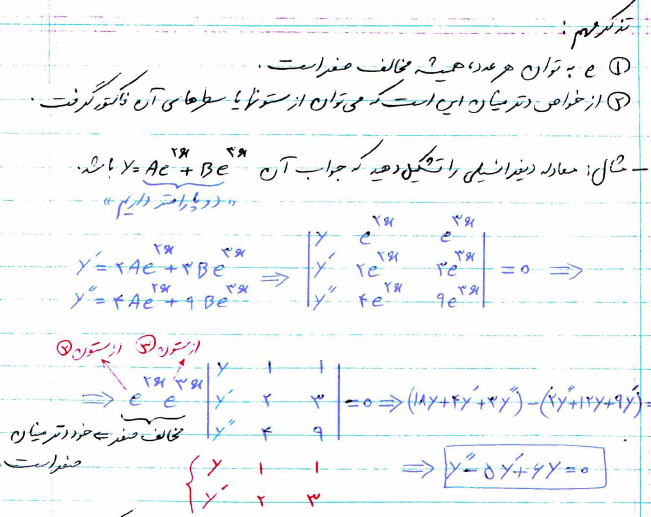 تذکر مهم :
① e به توان هر عدد، همیشه مخالف صفر است .
② از خواص دترمینان این است که می توان از ستونها یا سطرهای آن فاکتور گرفت .
– مثال: معادله دیفرانسیلی را تشکیل دهید که جواب آن y=Ae^۲x + Be^۳x باشد.
"دو پارامتر داریم"
y′ = ۲Ae^۲x + ۳Be^۳x
y″ = ۴Ae^۲x + ۹Be^۳x
⇒ | y e^۲x e^۳x |
| y′ ۲e^۲x ۳e^۳x | = ۰ ⇒
| y″ ۴e^۲x ۹e^۳x |
از ستون ② از ستون ③
⇒ e^۲x e^۳x | y ۱ ۱ |
| y′ ۲ ۳ | = ۰ ⇒ (۱۸y+۴y′+۳y″) – (۲y″+۱۲y+۹y′) =
| y″ ۴ ۹ |
مخالف صفر ⇒ خود دترمینان
صفر است.
{ y ۱ ۱
y′ ۲ ۳
⇒ y″ – ۵y′ + ۶y = ۰